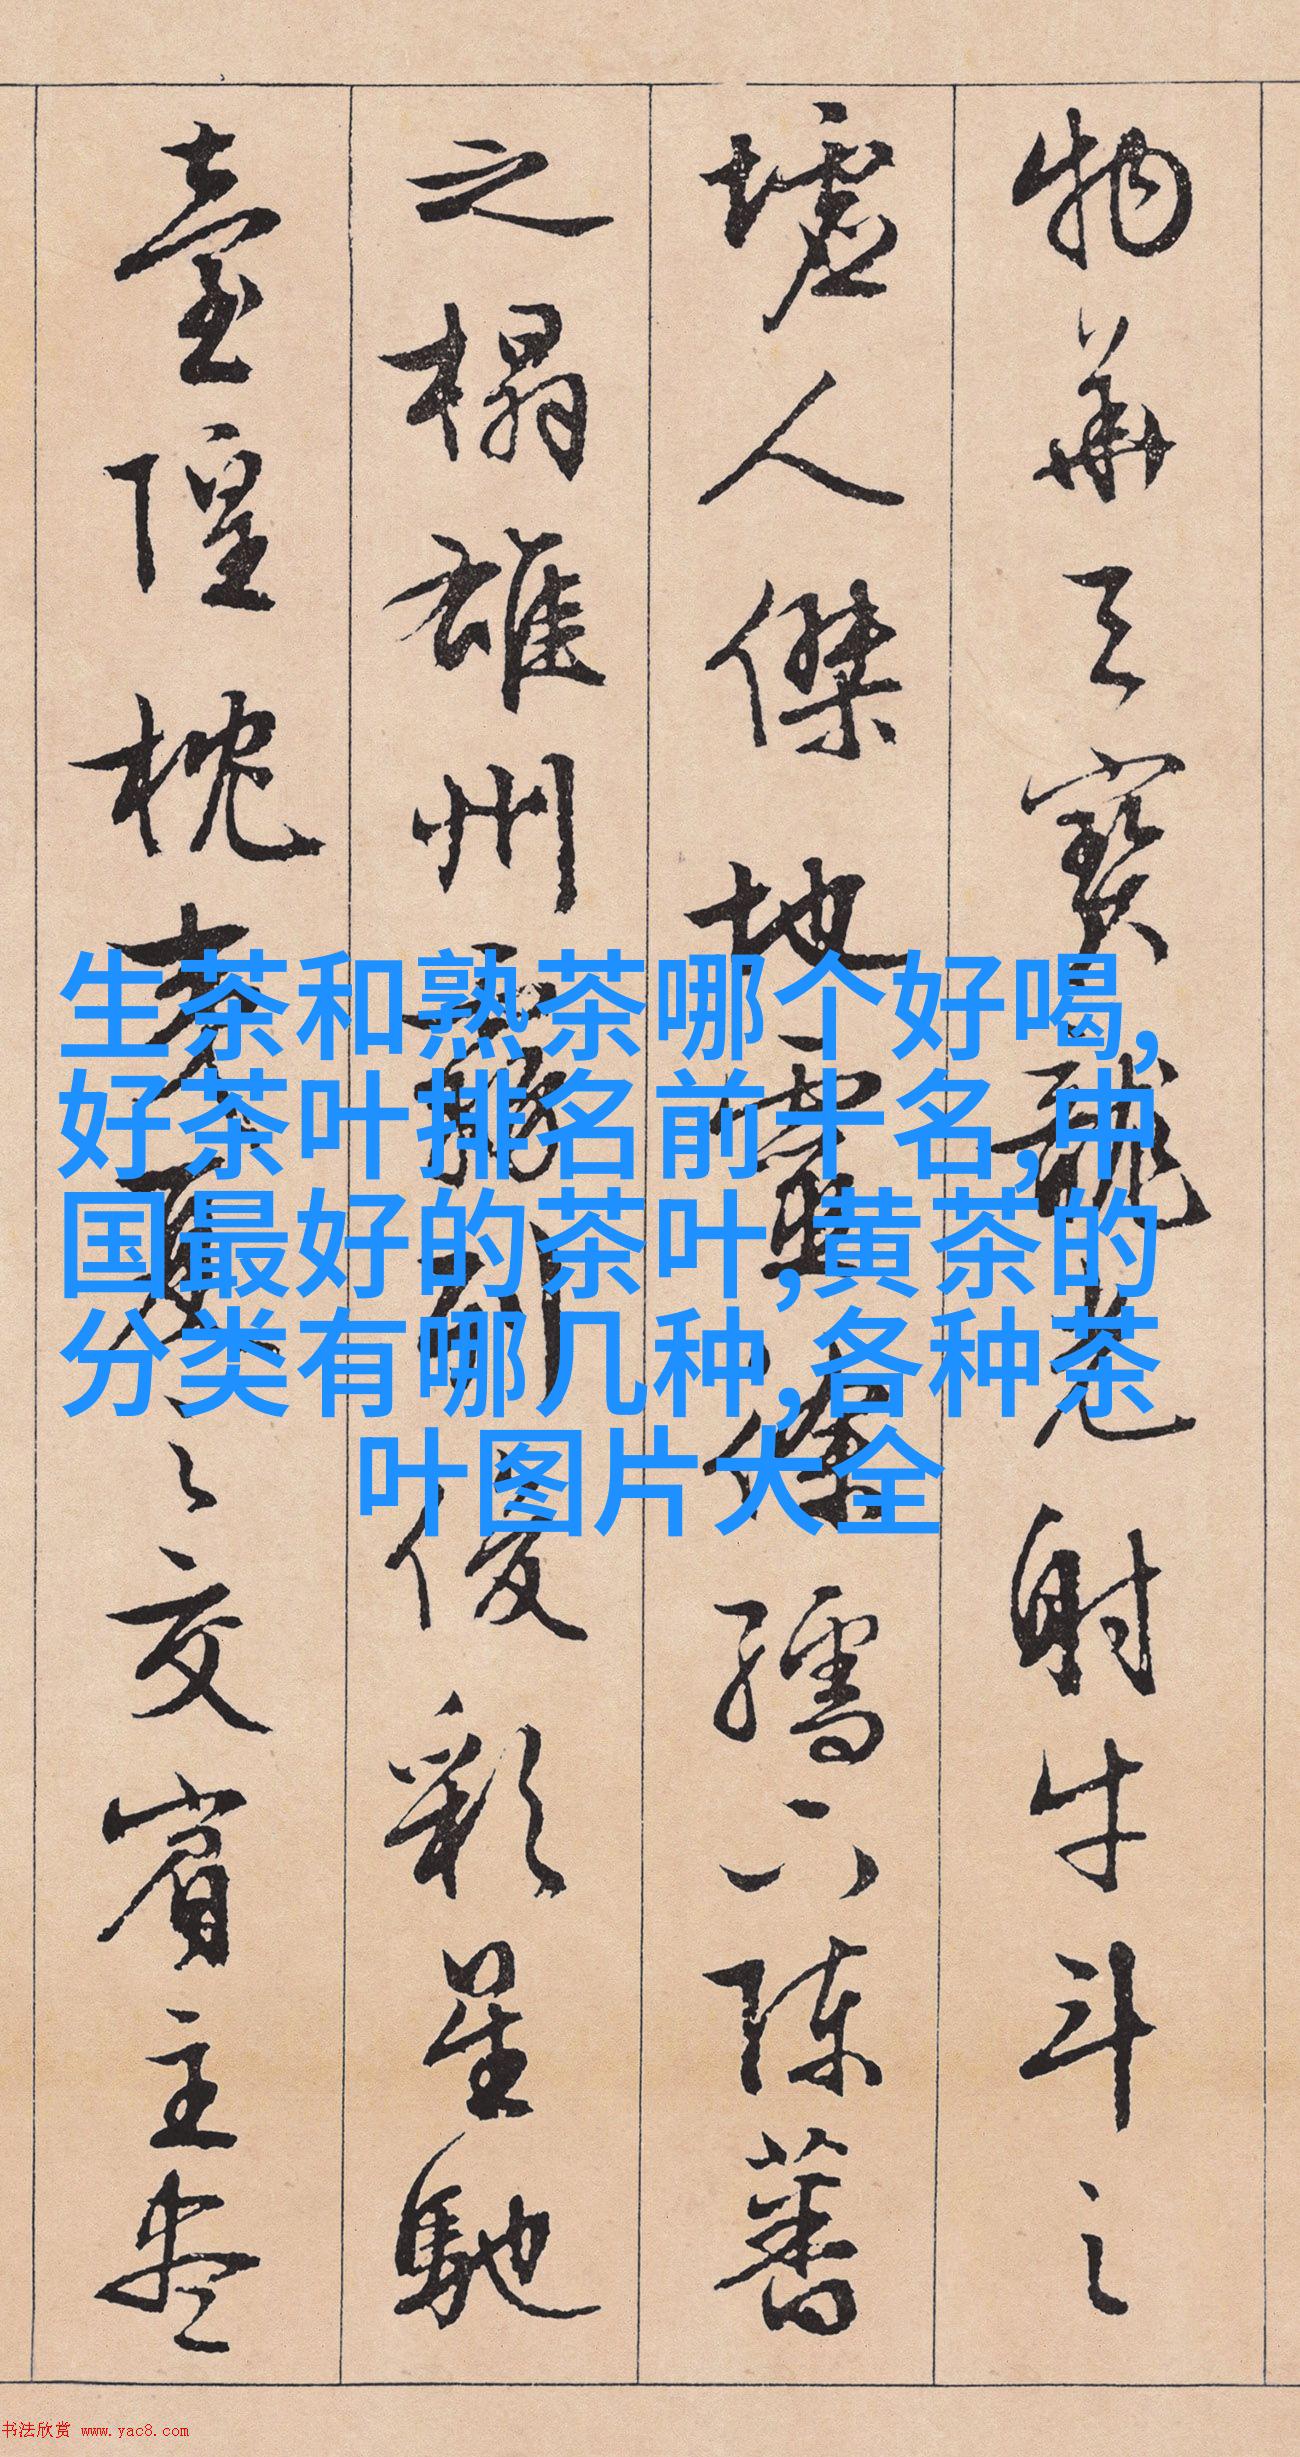 物華天寶龍光射牛斗之
墟人傑地靈徐孺下陳蕃
之榻雄州霧列俊彩星馳
臺隍枕夷夏之交賓主盡
生茶和熟茶哪个好喝,
好茶叶排名前十名,中
国最好的茶叶,黄茶的
分类有哪几种,各种茶
叶图片大全
书法欣赏 www.yac8.com